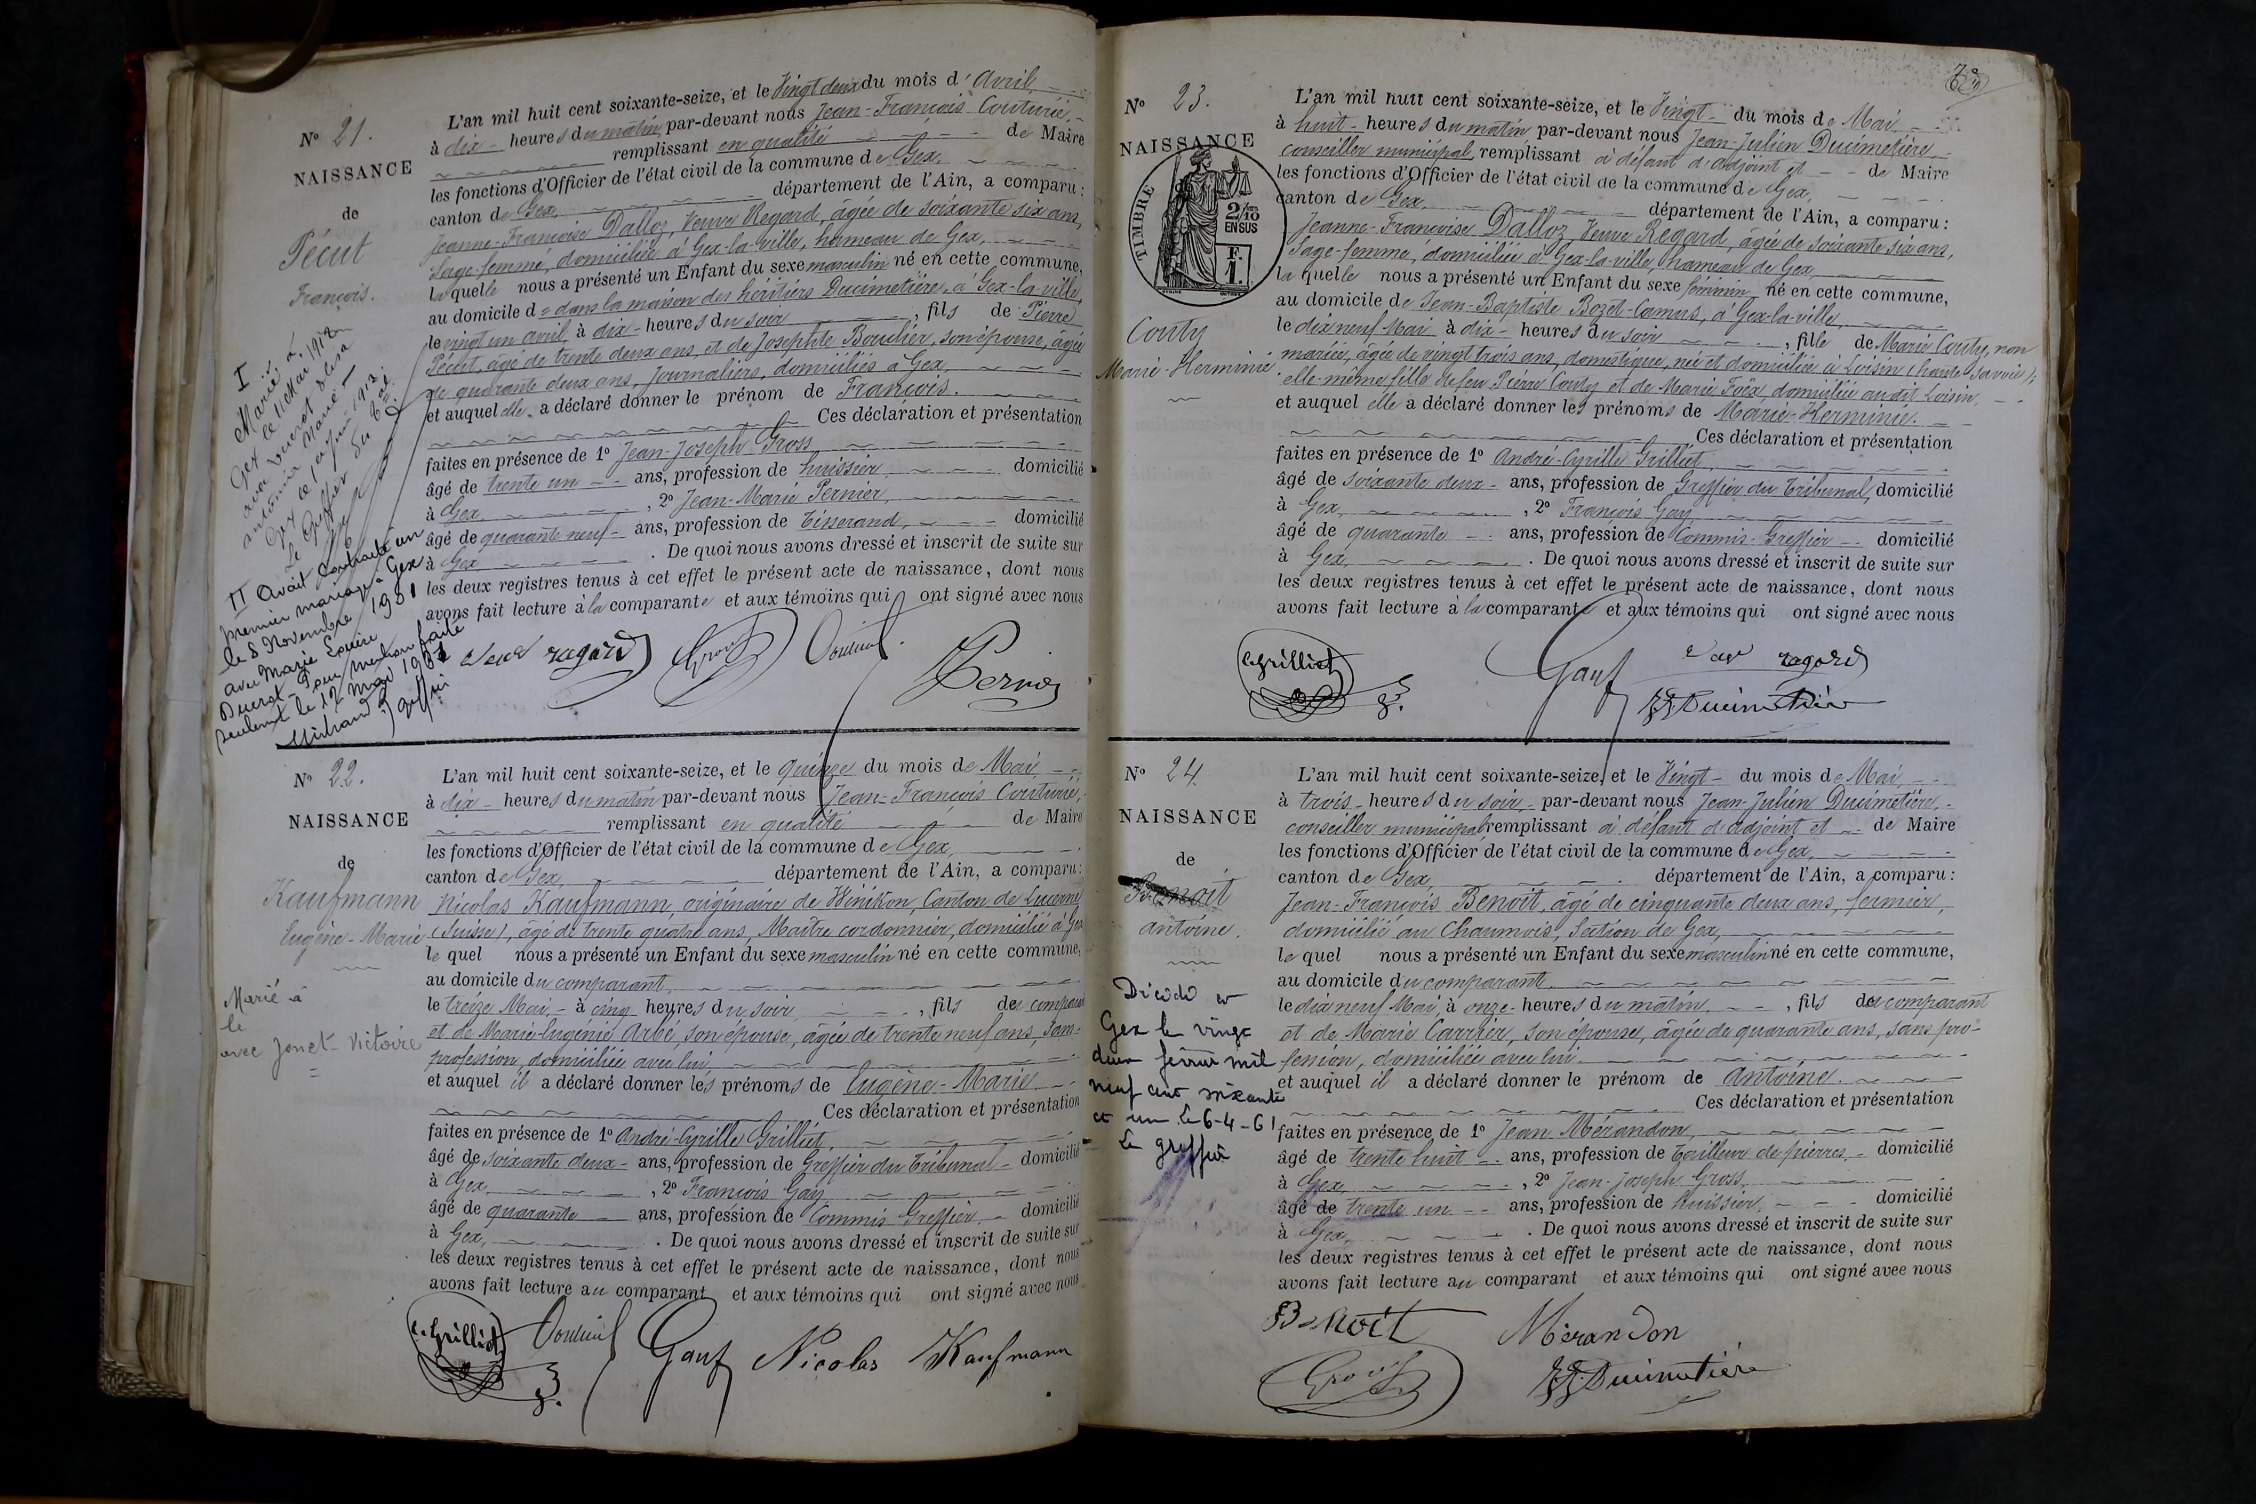 N° 21.
NAISSANCE
de
Pécut
François.
I
Marié à
Gex le 11 Mai 1912
avec Ducrot Elisa
Antonia Marie
Gex le 1er Juin 1912.
Le Greffier du Tal.
II Avait contracté un
premier mariage à Gex
le 8 Novembre 1901
avec Marie Louise
Ducrot - Pour mention faite
seulement le 12 Mai 1931
greffier
L'an mil huit cent soixante-seize, et le Vingt deux du mois d'Avril,
à dix heures du matin, par-devant nous Jean-François Couturier,
remplissant en qualité de Maire
les fonctions d'Officier de l'état civil de la commune de Gex,
canton de Gex, département de l'Ain, a comparu :
Jeanne-Françoise Dalloz, Veuve Regard, âgée de soixante six ans,
Sage-femme, domiciliée à Gex-la-ville, hameau de Gex,
laquelle nous a présenté un Enfant du sexe masculin né en cette commune,
au domicile d = dans la maison des héritiers Ducimetière, à Gex-la-ville,
le vingt un avril, à dix heures du soir, fils de Pierre
Pécut, âgé de trente deux ans, et de Josephte Bouclier, son épouse, âgée
de quarante deux ans, journaliers, domiciliés à Gex,
et auquel elle a déclaré donner le prénom de François.
Ces déclaration et présentation
faites en présence de 1° Jean-Joseph Gross
âgé de trente un ans, profession de huissier, domicilié
à Gex, 2° Jean-Marie Pernier,
âgé de quarante neuf ans, profession de Tisserand, domicilié
à Gex. De quoi nous avons dressé et inscrit de suite sur
les deux registres tenus à cet effet le présent acte de naissance, dont nous
avons fait lecture à la comparante et aux témoins qui ont signé avec nous
veuve ragard Gross Couturier Pernier
N° 22.
NAISSANCE
de
Kaufmann
Eugène-Marie
Marié à
le
avec Jonet Victoire
L'an mil huit cent soixante-seize, et le quinze du mois de Mai,
à dix heures du matin par-devant nous Jean-François Couturier,
remplissant en qualité de Maire
les fonctions d'Officier de l'état civil de la commune de Gex,
canton de Gex, département de l'Ain, a comparu :
Nicolas Kaufmann, originaire de Winikon, Canton de Lucerne
(Suisse), âgé de trente quatre ans, Maître cordonnier, domicilié à Gex
lequel nous a présenté un Enfant du sexe masculin né en cette commune,
au domicile du comparant,
le treize Mai, à cinq heures du soir, fils de comparant
et de Marie-Eugénie Arbé, son épouse, âgée de trente neuf ans, sans
profession, domiciliée avec lui,
et auquel il a déclaré donner les prénoms de Eugène-Marie
Ces déclaration et présentation
faites en présence de 1° André-Cyrille Grilliet,
âgé de soixante deux ans, profession de Greffier du Tribunal domicilié
à Gex, 2° François Gay
âgé de quarante ans, profession de Commis-Greffier domicilié
à Gex. De quoi nous avons dressé et inscrit de suite sur
les deux registres tenus à cet effet le présent acte de naissance, dont nous
avons fait lecture au comparant et aux témoins qui ont signé avec nous
C. Grilliet Couturier Gay Nicolas Kaufmann
N° 23.
NAISSANCE
TIMBRE
2/10
EN SUS
F.
1.
Couty
Marie-Herminie
L'an mil huit cent soixante-seize, et le Vingt du mois de Mai,
à huit heures du matin par-devant nous Jean-Julien Ducimetière,
conseiller municipal, remplissant à défaut d'adjoint et de Maire
les fonctions d'Officier de l'état civil de la commune de Gex,
canton de Gex, département de l'Ain, a comparu :
Jeanne-Françoise Dalloz, Veuve Regard, âgée de soixante six ans,
Sage-femme, domiciliée à Gex-la-ville, hameau de Gex
laquelle nous a présenté un Enfant du sexe féminin né en cette commune,
au domicile de Jean-Baptiste Bozet-Camus, à Gex-la-ville,
le dix neuf Mai à dix heures du soir, fille de Marie Couty, non
mariée, âgée de vingt trois ans, domestique, née et domiciliée à Loisin (haute-Savoie);
elle-même fille de feu Pierre Couty et de Marie Foëx, domiciliée audit Loisin,
et auquel elle a déclaré donner les prénoms de Marie-Herminie.
Ces déclaration et présentation
faites en présence de 1° André-Cyrille Grilliet,
âgé de soixante deux ans, profession de Greffier du Tribunal, domicilié
à Gex, 2° François Gay
âgé de quarante ans, profession de Commis-Greffier domicilié
à Gex. De quoi nous avons dressé et inscrit de suite sur
les deux registres tenus à cet effet le présent acte de naissance, dont nous
avons fait lecture à la comparante et aux témoins qui ont signé avec nous
C. Grilliet Gay veuve ragard
JJ Ducimetière
N° 24
NAISSANCE
de
Benoit
Antoine.
Décédé à
Gex le vingt
deux février mil
neuf cent soixante
et un le 6-4-61
Le greffier
L'an mil huit cent soixante-seize, et le Vingt du mois de Mai,
à trois heures du soir, par-devant nous Jean-Julien Ducimetière,
conseiller municipal remplissant à défaut d'adjoint et de Maire
les fonctions d'Officier de l'état civil de la commune de Gex,
canton de Gex, département de l'Ain, a comparu :
Jean-François Benoit, âgé de cinquante deux ans, fermier,
domicilié au Chaumois, Section de Gex,
lequel nous a présenté un Enfant du sexe masculin né en cette commune,
au domicile du comparant,
le dix neuf Mai, à onze heures du matin, fils du comparant
et de Marie Carrier, son épouse, âgée de quarante ans, sans pro-
fession, domiciliée avec lui
et auquel il a déclaré donner le prénom de Antoine.
Ces déclaration et présentation
faites en présence de 1° Jean Mérandon,
âgé de trente huit ans, profession de Tailleur de pierres, domicilié
à Gex, 2° Jean-Joseph Gross
âgé de trente un ans, profession de huissier, domicilié
à Gex. De quoi nous avons dressé et inscrit de suite sur
les deux registres tenus à cet effet le présent acte de naissance, dont nous
avons fait lecture au comparant et aux témoins qui ont signé avec nous
Benoit Mérandon
Gross JJ Ducimetière